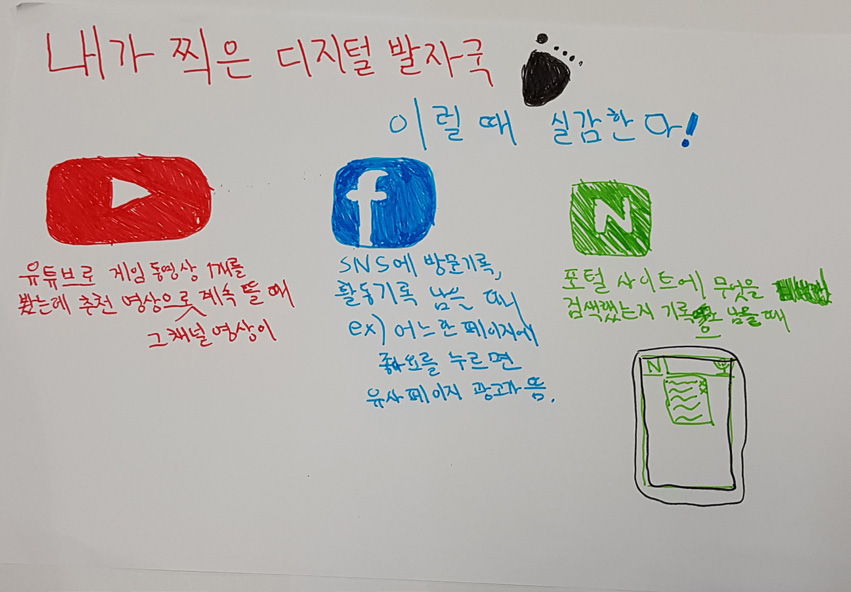 내가 찍은 디지털 발자국
이럴 때 실감한다!
유튜브로 게임 동영상 1개를
봤는데 추천 영상으로 계속 뜰 때
그 채널 영상이
f
SNS에 방문기록,
활동기록 남을 때
ex) 어느 한 페이지에
좋아요를 누르면
유사 페이지 광고가 뜸.
N
포털 사이트에 무엇을
검색했는지 기록으로 남을 때
N